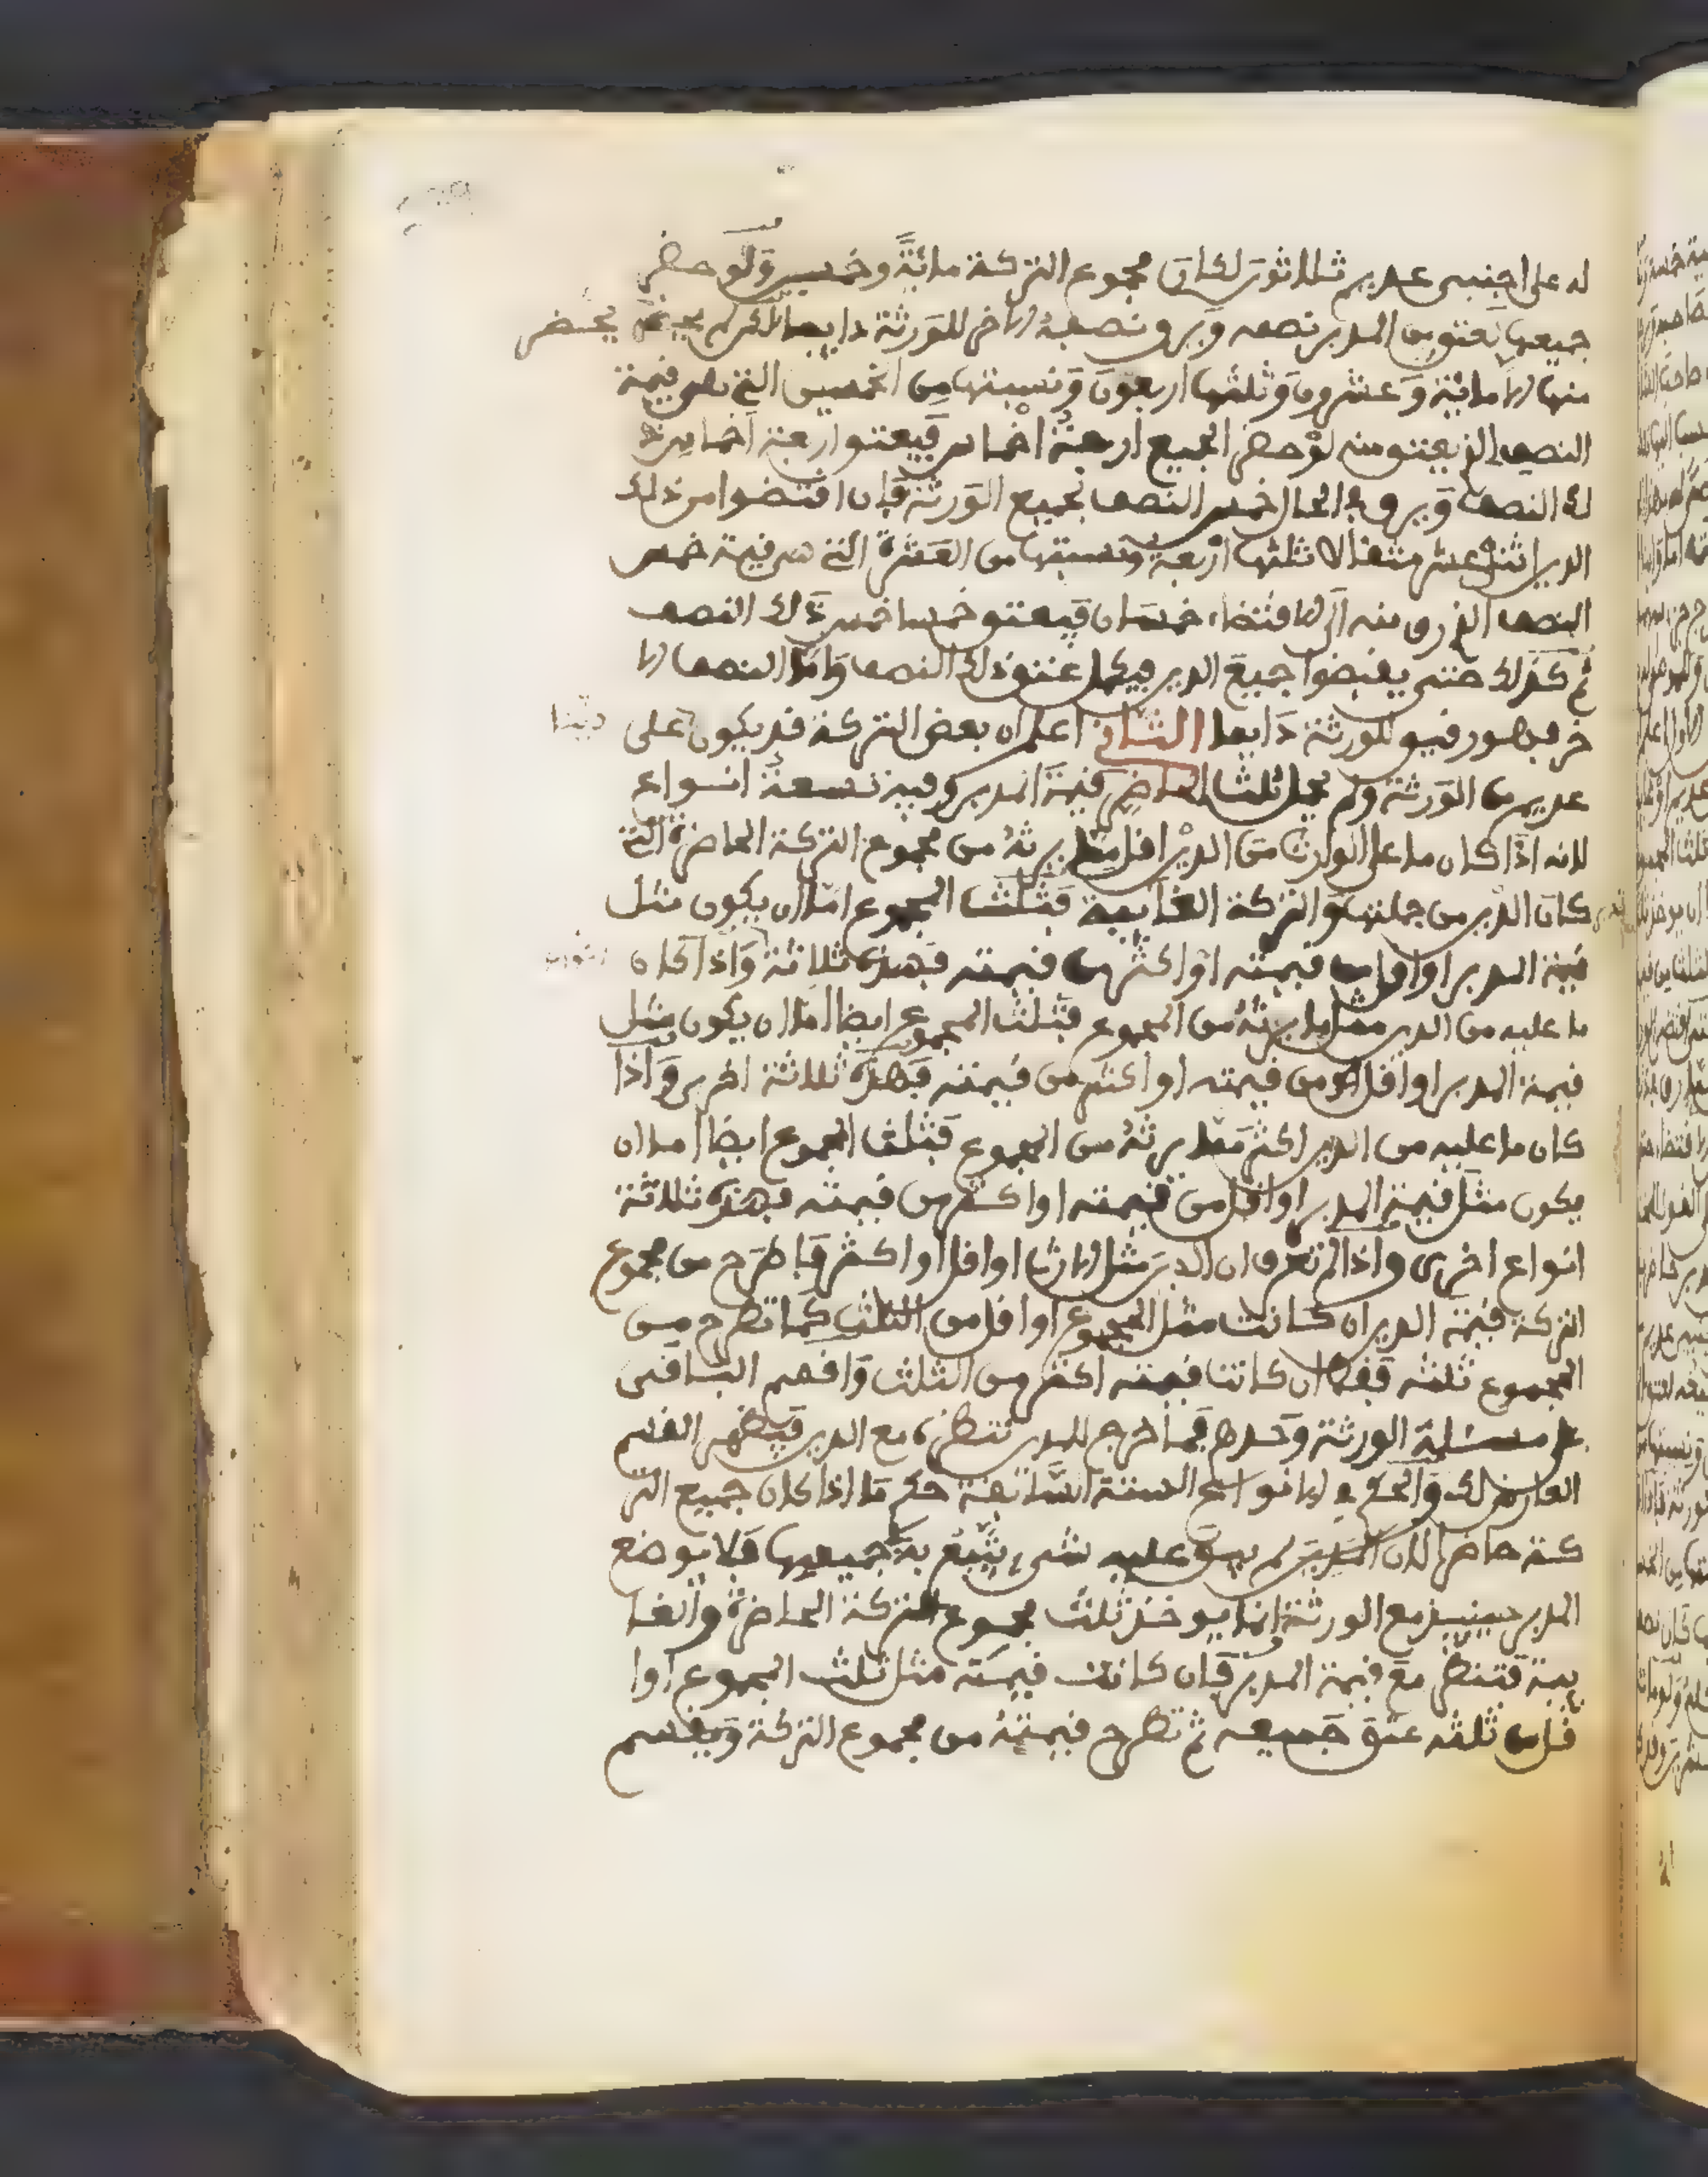 له على اجنبي عديم ثلاثون لكان مجموع التركة مائة وخمسين ولو حضر
جميعها لعتق من المدبر نصفه ورق نصفه الاخر للورثة دايما لكن يحضر
منها الا مائة وعشرون وثلثها اربعون ونسبتها من الخمسين التي هي قيمة
النصف الذي يعتق منه لو حضر الجميع اربعة اخماس فيعتق اربعة اخماس ذ
لك النصف ويرق في الحال خمس النصف لجميع الورثة فان اقتضوا من ذلك
الدين اثني عشر مثقالا ثلثها اربعة ونسبتها من العشرة التي هي قيمة خمس
النصف الذي رق منه الى الاقتضاء خمسان فيعتق خمسا خمس ذلك النصف
ثم كذلك حتى يقبضوا جميع الدين فيكمل عتق ذلك النصف واما النصف الا
خر فهو رقيق للورثة دايما الثاني اعلم ان بعض التركة قد يكون دينا على
عديم من الورثة ولم يحمل ثلث الحاضر قيمة المدبر وفيه تسعة انواع
لانه اذا كان ما على الوارث من الدين اقل مما يرثه من مجموع التركة الحاضرة التي
كان الدين من جملتها والتركة الغايبة فثلث المجموع اما ان يكون مثل
قيمة المدبر او اقل من قيمته او اكثر من قيمته فهذه ثلاثة واذا كان
ما عليه من الدين مثل ما يرثه من المجموع فثلث المجموع ايضا اما ان يكون مثل
قيمة المدبر او اقل من قيمته او اكثر من قيمته فهذه ثلاثة اخرى واذا
كان ما عليه من الدين اكثر مما يرثه من المجموع فثلث المجموع ايضا اما ان
يكون مثل قيمة المدبر او اقل من قيمته او اكثر من قيمته فهذه ثلاثة
انواع اخرى واذا لم تعرف ان الدين مثل الارث او اقل او اكثر فاطرح من مجموع
التركة قيمة المدبر ان كانت مثل المجموع او اقل من الثلث كما تطرح من
المجموع ثلثه فقط ان كانت قيمته اكثر من الثلث واقسم الباقي
على مسئلة الورثة وحدهم فما خرج للمدين تنظره مع الدين فيظهر القسم
العارض لك والحكم في الانواع الستة السابقة حكم ما اذا كان جميع التر
كة حاضرا لان المدين لم يبق عليه شيء يتبع به جميعها فلا يوضع
المدبر حينئذ مع الورثة انما يوخذ ثلث مجموع التركة الحاضرة والغا
يبة فتنظر مع قيمة المدبر فان كانت قيمته مثل ثلث المجموع او ا
قل من ثلثه عتق جميعه ثم تطرح قيمته من مجموع التركة ويقسم